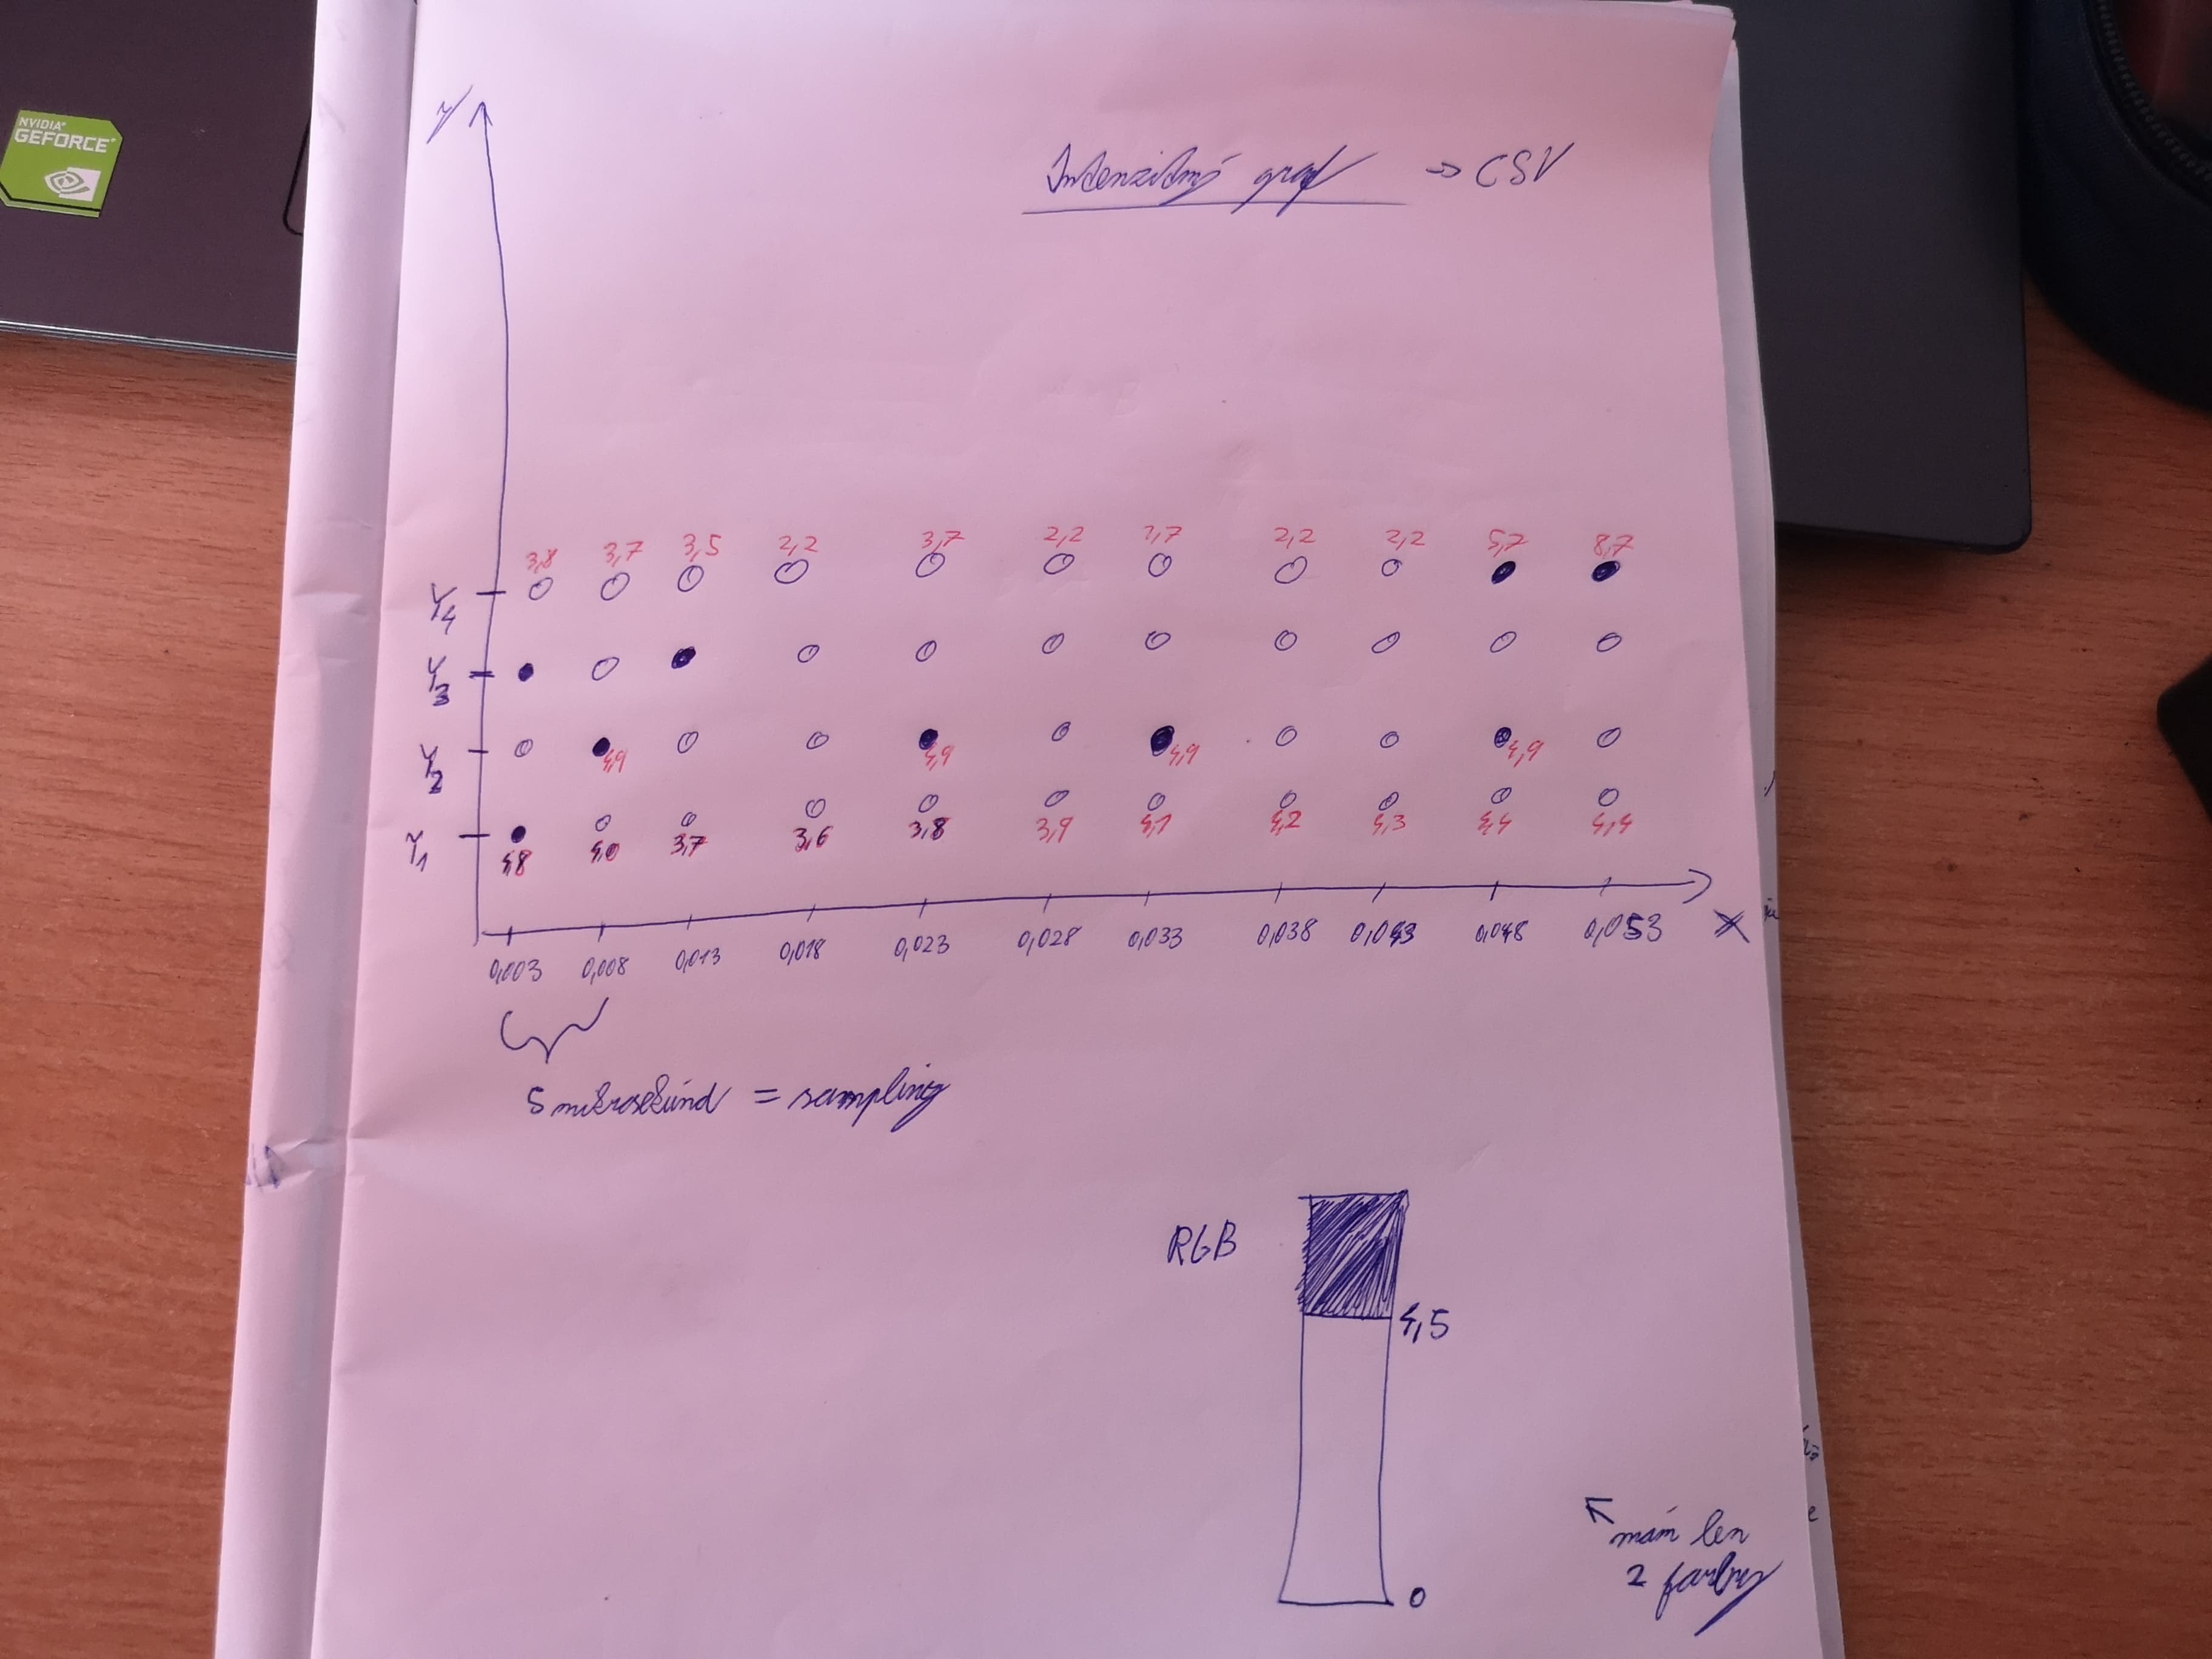 NVIDIA®
GEFORCE®
Y
Intenzitný graf → CSV
3,8 3,7 3,5 2,2 3,7 2,2 2,7 2,2 2,2 5,7 8,7
Y4
Y3
Y2
4,9 4,9 4,9 4,9
Y1
4,8 4,0 3,7 3,6 3,8 3,9 4,1 4,2 4,3 4,4 4,4
X
0,003 0,008 0,013 0,018 0,023 0,028 0,033 0,038 0,043 0,048 0,053
5 mikrosekúnd = sampling
RGB
4,5
0
mám len
2 farby